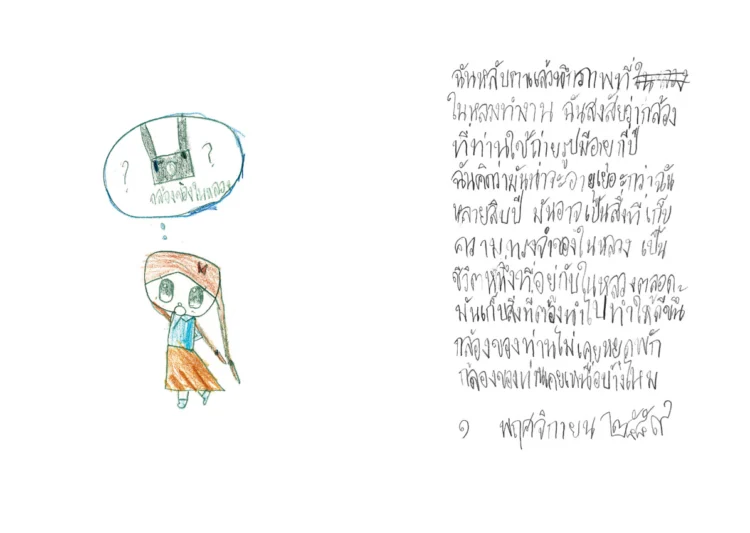 ?
?
กล้องของในหลวง
ฉันหลับตาแล้วนึกภาพที่
ในหลวงทำงาน ฉันสงสัยว่ากล้อง
ที่ท่านใช้ถ่ายรูปมีอายุกี่ปี
ฉันคิดว่ามันน่าจะอายุเยอะกว่าฉัน
หลายสิบปี มันอาจเป็นสิ่งที่เก็บ
ความทรงจำของในหลวง เป็น
ชีวิตหนึ่งที่อยู่กับในหลวงตลอด
มันเก็บสิ่งที่ต้องทำไปทำให้ดีขึ้น
กล้องของท่านไม่เคยหยุดพัก
กล้องของท่านเคยเหนื่อยบ้างไหม
๑ พฤศจิกายน ๒๕๕๙